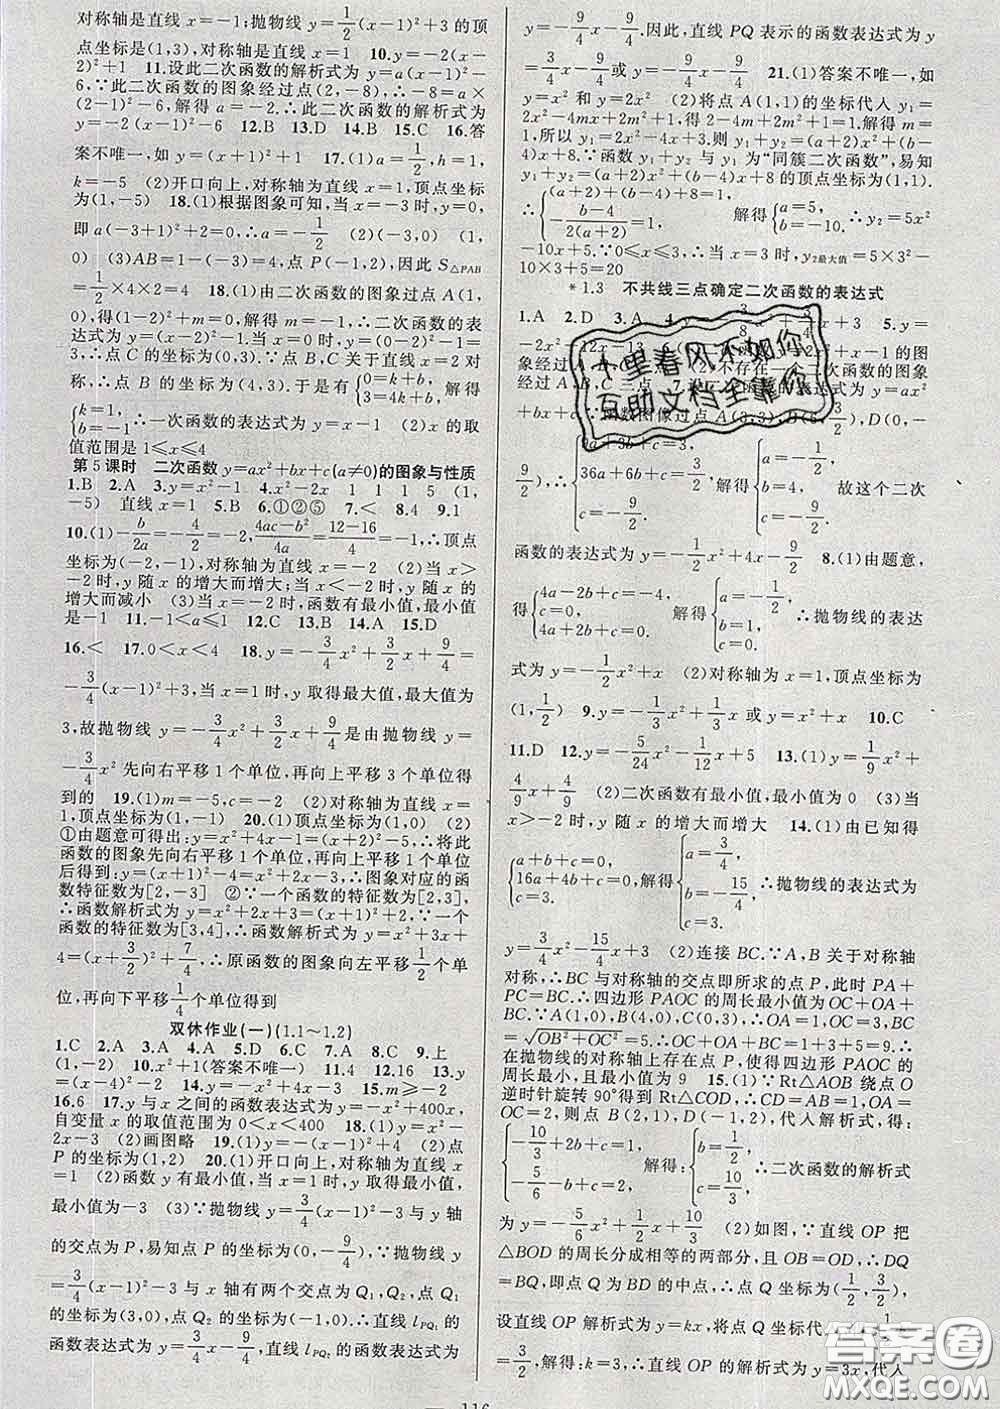 对称轴是直线 x=-1;抛物线 y=1/2(x-1)²+3 的顶
点坐标是(1,3),对称轴是直线 x=1 10.y=-2(x-
2)²+1 11.设此二次函数的解析式为 y=a(x-1)²-
6.∵此二次函数的图象经过点(2,-8),∴-8=a×
(2-1)²-6,解得 a=-2.∴此二次函数的解析式为
y=-2(x-1)²-6 12.B 13.D 14.B 15.C 16.答
案不唯一,如 y=(x+1)²+1 17.(1)a=1/2,h=1,
k=-5 (2)开口向上,对称轴为直线 x=1,顶点坐标
为(1,-5) 18.(1)根据图象可知,当 x=-3 时,y=0,
即 a(-3+1)²+2=0,∴a=-1/2 (2)(-3,0) (1,
0) (3)AB=1-(-3)=4,点 P(-1,2),因此 S△PAB=
1/2×4×2=4 18.(1)由二次函数的图象过点 A(1,
0),得(1-2)²+m=0,解得 m=-1,∴二次函数的表
达式为 y=(x-2)²-1.当 x=0 时,y=(0-2)²-1=
3,∴点 C 的坐标为(0,3).∵点 B,C 关于直线 x=2 对
称,∴点 B 的坐标为(4,3).于是有{0=k+b, 3=4k+b. 解得
{k=1, b=-1.∴一次函数的表达式为 y=x-1 (2)x 的取
值范围是 1≤x≤4
第 5 课时 二次函数 y=ax²+bx+c(a≠0)的图象与性质
1.B 2.A 3.y=x²-1 4.x²-2x 1 1 1 5 (1,
-5) 直线 x=1 5.B 6.①②⑤ 7.< 8.4 9.1
10.(1)-b/2a=-4/2=-2,(4ac-b²)/4a=(12-16)/4=-1,∴顶点
坐标为(-2,-1),对称轴为直线 x=-2 (2)当 x>
-2 时,y 随 x 的增大而增大;当 x<-2 时,y 随 x 的
增大而减小 (3)当 x=-2 时,函数有最小值,最小值
是-1 11.-1<a≤1 12.C 13.B 14.A 15.D
16.< 17.0<x<4 18.y=-3/4x²+3/2x+9/4
=-3/4(x-1)²+3,当 x=1 时,y 取得最大值,最大值为
3,故抛物线 y=-3/4x²+3/2x+9/4是由抛物线 y=
-3/4x²先向右平移 1 个单位,再向上平移 3 个单位得
到的 19.(1)m=-5,c=-2 (2)对称轴为直线 x=
1,顶点坐标为(1,-1) 20.(1)顶点坐标为(1,0) (2)
①由题意可得出:y=x²+4x-1=(x+2)²-5,将此
函数的图象先向右平移 1 个单位,再向上平移 1 个单位
后得到:y=(x+1)²-4=x²+2x-3,∴图象对应的函
数特征数为[2,-3] ②∵一个函数的特征数为[2,3],
∴函数解析式为 y=x²+2x+3=(x+1)²+2.∵一个
函数的特征数为[3,4],∴函数解析式为 y=x²+3x+
4=(x+3/2)²+7/4,∴原函数的图象向左平移1/2个单
位,再向下平移1/4个单位得到
双休作业(一)(1.1~1.2)
1.C 2.A 3.A 4.A 5.D 6.C 7.C 8.A 9.上
(1,-2) 10.x²+1(答案不唯一) 11.4 12.16 13.y
16.6 17.y 与 x 之间的函数表达式为 y=-x²+400x,
自变量 x 的取值范围为 0<x<400 18.(1)y=x²-
2x-3 (2)画图略 19.(1)y=-(x-1)²+4 (2)点
P 的坐标为(1,2) 20.(1)开口向上,对称轴为直线 x
=1 (2)函数 y 有最小值,当 x=1 时,y 取最小值,
最小值为-3 (3)∵抛物线 y=3/4(x-1)²-3 与 y 轴
的交点为 P,易知点 P 的坐标为(0,-9/4).∵抛物线 y
=3/4(x-1)²-3 与 x 轴有两个交点为 Q₁,Q₂,点 Q₁
的坐标为(3,0),点 Q₂ 的坐标为(-1,0).∴直线 l_PQ₁的
函数表达式为 y=3/4x-9/4,直线 l_PQ₂的函数表达式为
y=-9/4x-9/4.因此,直线 PQ 表示的函数表达式为 y=
3/4x-9/4或 y=-9/4x-9/4 21.(1)答案不唯一,如
y=x² 和 y=2x² (2)将点 A(1,1)的坐标代入 y₁=
2x²-4mx+2m²+1,得 2-4m+2m²+1=1,解得 m=
1,所以 y₁=2x²-4x+3.则 y₁+y₂=(a+2)x²+(b-
4)x+8.∵函数 y₁+y₂ 与 y₁为“同簇二次函数”,易知
y₁+y₂=(a+2)x²+(b-4)x+8 的顶点坐标为(1,1).
∴{(a+2)+(b-4)+8=1, -(b-4)/2(a+2)=1, 解得{a=5, b=-10.∴y₂=5x²
-10x+5.∵0≤x≤3,∴当 x=3 时,y₂最大值=5×3²-
10×3+5=20
*1.3 不共线三点确定二次函数的表达式
1.A 2.D 3.A
9/2),∴{9a+3b+c=3, 36a+6b+c=3/2, c=-9/2. 解得{a=-1/2, b=4, c=-9/2. 故这个二次
函数的表达式为 y=-1/2x²+4x-9/2 8.(1)由题意,
得{4a-2b+c=-4, c=0, 4a+2b+c=0. 解得{a=-1/2, b=1, c=0. ∴抛物线的表达
式为 y=-1/2x²+x (2)对称轴为 x=1,顶点坐标为
(1,1/2) 9.y=-1/3x²+2/3x 或 y=x²-2x 10.C
11.D 12.y=-5/24x²-1/12x+5 13.(1)y=1/9x²+
4/9x+4/9 (2)二次函数有最小值,最小值为 0 (3)当
x>-2 时,y 随 x 的增大而增大 14.(1)由已知得
{a+b+c=0, 16a+4b+c=0, c=3. 解得{a=3/4, b=-15/4, c=3. ∴抛物线的表达式为
y=3/4x²-15/4x+3 (2)连接 BC.∵A,B 关于对称轴
对称,∴BC 与对称轴的交点即所求的点 P,此时 PA+
PC=BC.∴四边形 PAOC 的周长最小值为 OC+OA+
BC.∵A(1,0),B(4,0),C(0,3),∴OA=1,OC=3,
BC=√OB²+OC²=5.∴OC+OA+BC=1+3+5=9.∴
在抛物线的对称轴上存在点 P,使得四边形 PAOC 的
周长最小,最小值为 9 15.(1)∵Rt△AOB 绕点 O
逆时针旋转 90°得到 Rt△COD,∴CD=AB=1,OA=
OC=2,则点 B(2,1),D(-1,2),代入解析式,得:
{-10/3+2b+c=1, -5/6-b+c=2, 解得:{b=1/2, c=10/3. ∴二次函数的解析式
为 y=-5/6x²+1/2x+10/3 (2)如图,∵直线 OP 把
△BOD 的周长分成相等的两部分,且 OB=OD,∴DQ
=BQ,即点 Q 为 BD 的中点,∴点 Q 坐标为(1/2,3/2),
设直线 OP 解析式为 y=kx,将点 Q 坐标代
3/2,解得:k=3,∴直线 OP 的解析式为 y=3x,代入
116
十里春风不如你
互助文档全靠你
答案圈
MXQE.COM